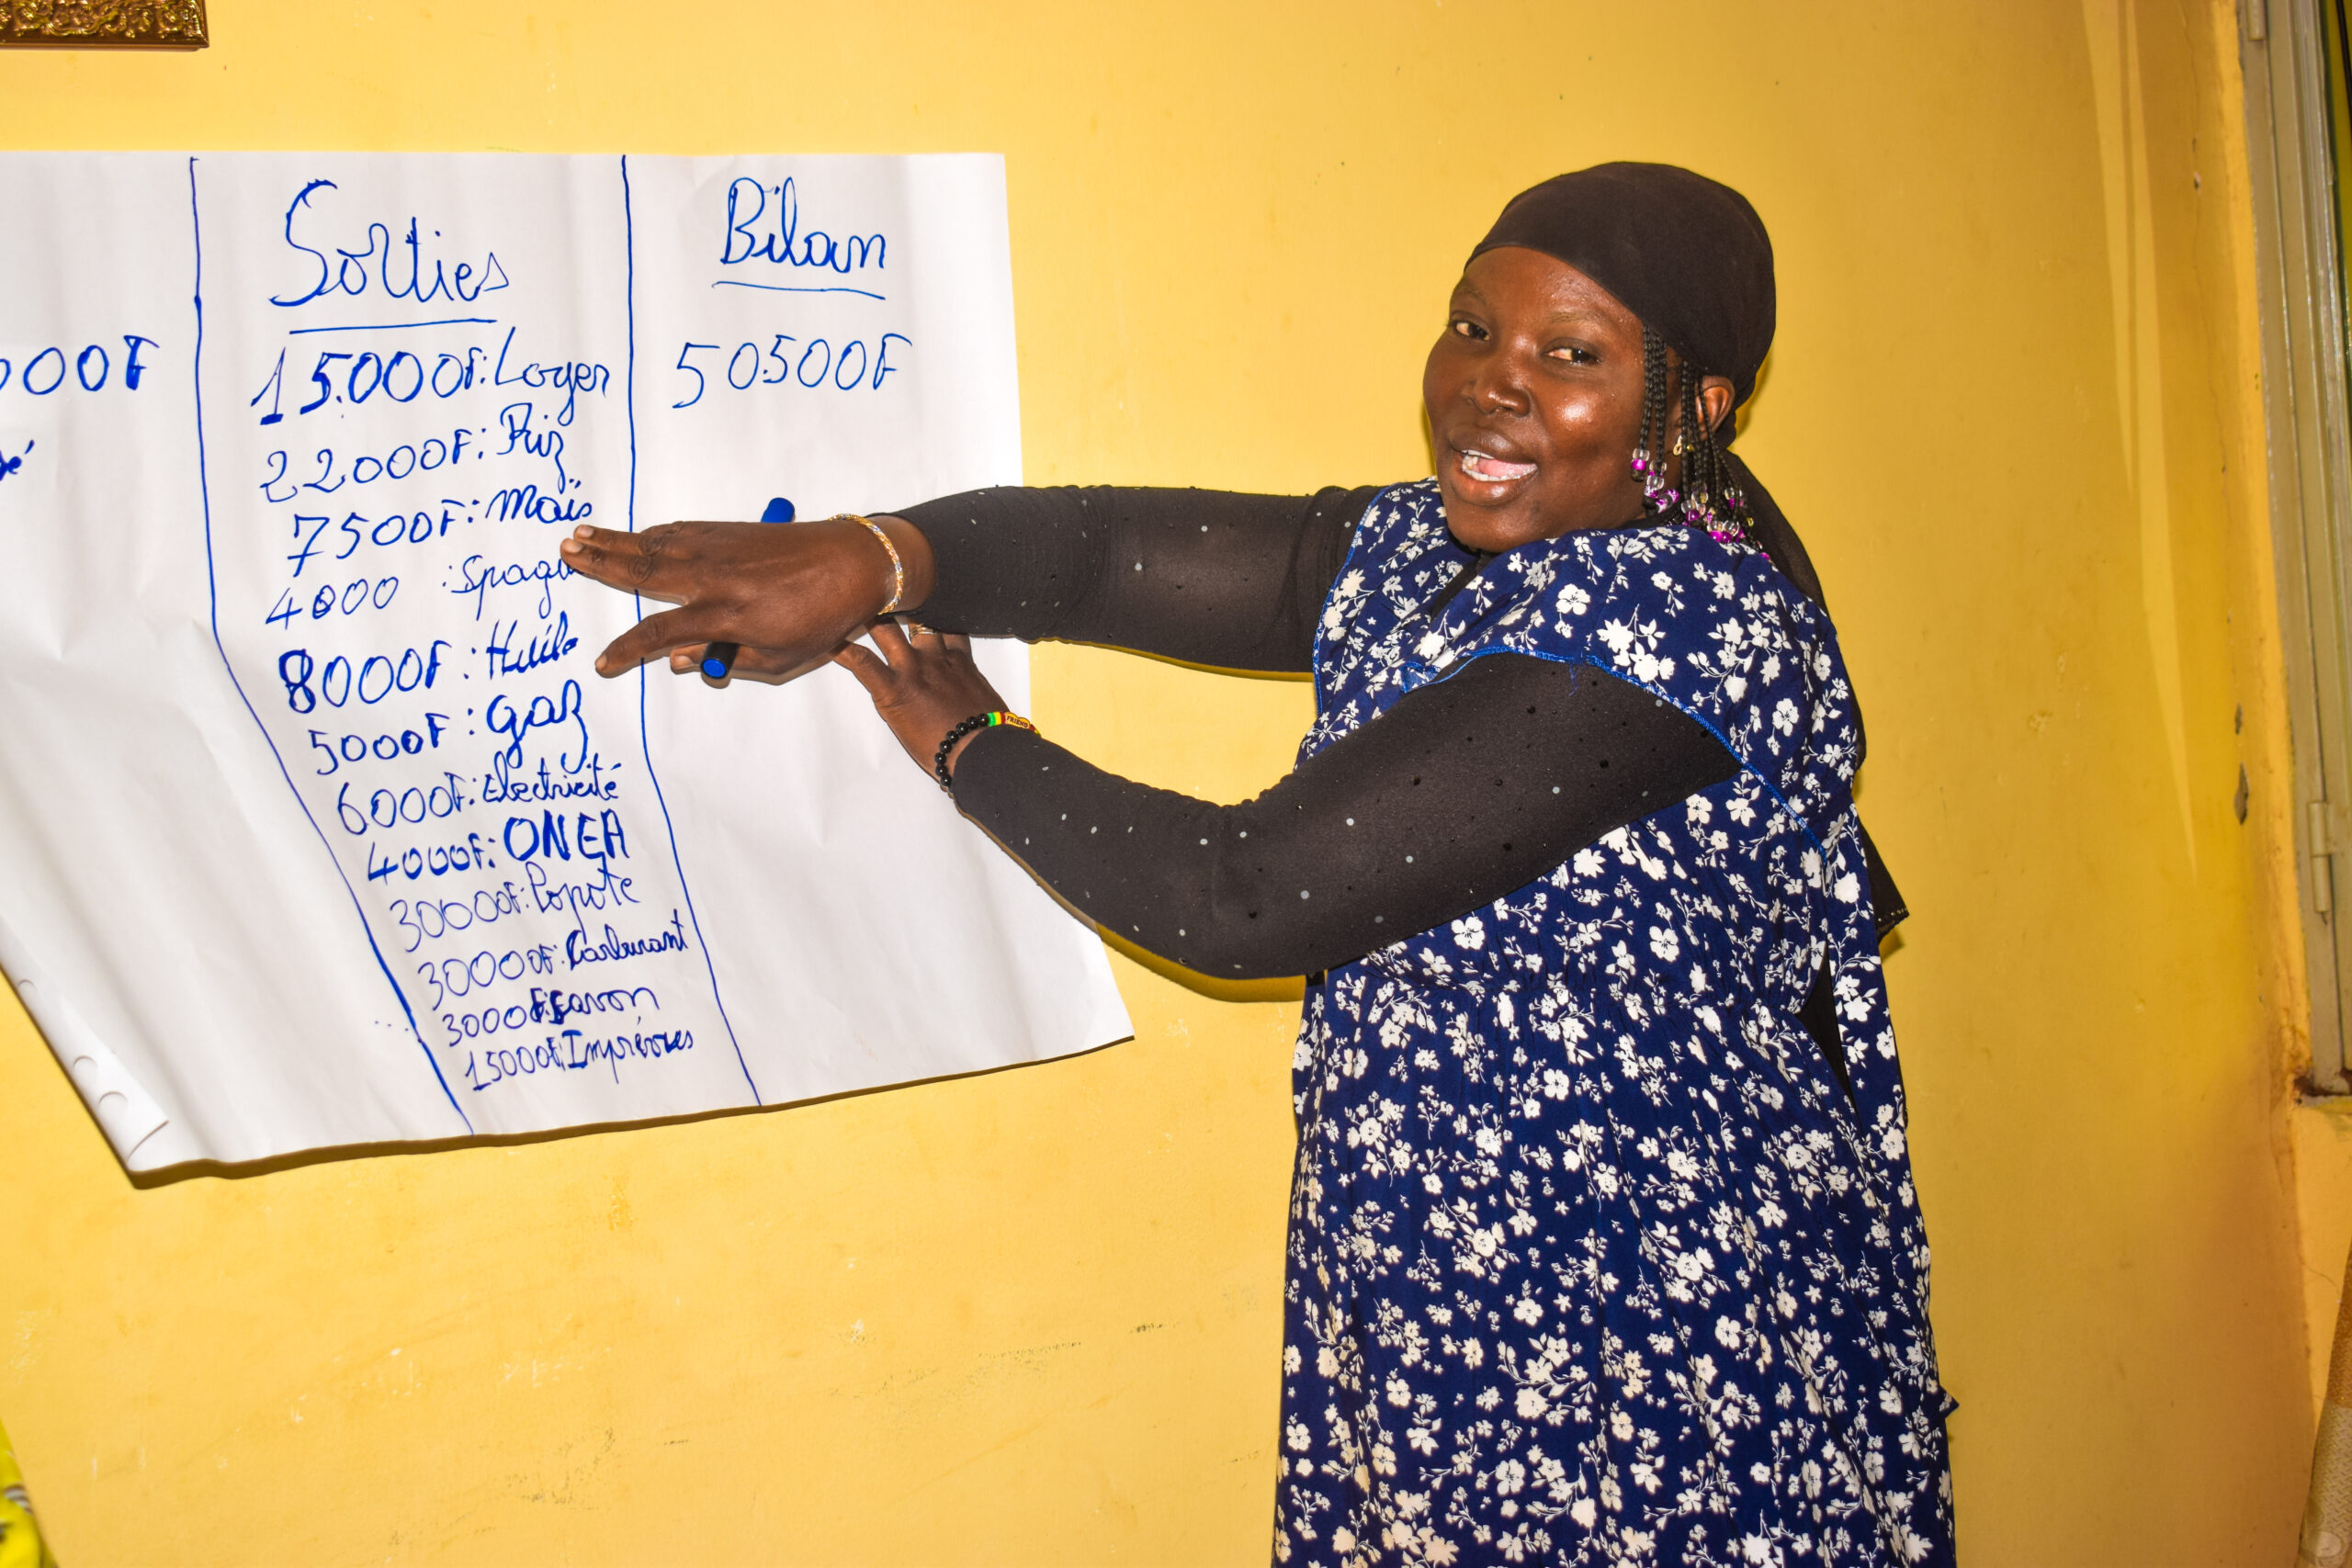 000F
Sorties
15.000F: Loyer
22000F: Riz
7500F: Maïs
4000 : Spag
8000F: Huile
5000F: gaz
6000F: Electricité
4000F: ONEA
30000F: Popote
30000F: Carburant
3000F: Savon
15000F: Imprévues
Bilan
50.500F
FRIEND